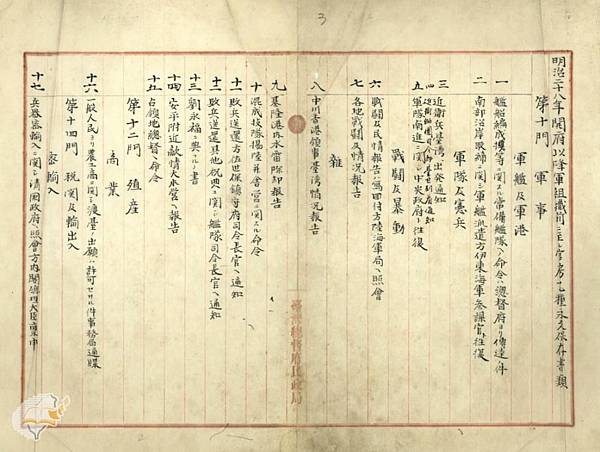 明治二十八年開府以降軍組織前ニ立官房乙種永久保存書類
第十門 軍事
軍艦及軍港
一 艦船編成擴張等ニ関スル常備艦隊ヘ命令ハ總督府ヨリ傳達ノ件
二 南部沿岸取締ニ関シ軍艦派遣方伊東海軍参謀官ト往復
軍隊及憲兵
三 近衛兵臺湾ヘ出発通知
四
五 軍隊南進ニ関シ中央政府ト往復
戰鬪及暴動
六 戰鬪及民情報告ノ写回付方陸海軍局ヘ照會
七 各地戰鬪及情況報告
雜
八 中川香港領事臺湾情況報告
九 基隆港内水雷除却報告
十 混成枝隊揚陸幷舎営ニ関スル命令
十一 敗兵送還方佐世保鎮守府司令長官ヘ通知
十二 敗兵送還其他処夾ニ関シ艦隊司令長官ヘ通知
十三 劉永福ニ與フル書
十四 安平附近敵情大本營ヘ報告
十五 占領地總督ヘ命令
第十二門 殖産
商業
十六 一般人民ヨリ農工商ニ関シ渡臺ノ出願ハ許可セサル件事務局通牒
第十四門 税関及輸出入
密輸入
十七 兵器密輸入ニ関シ清国政府ヘ照會方内閣總理大臣稟申
臺灣總督府民政局
3